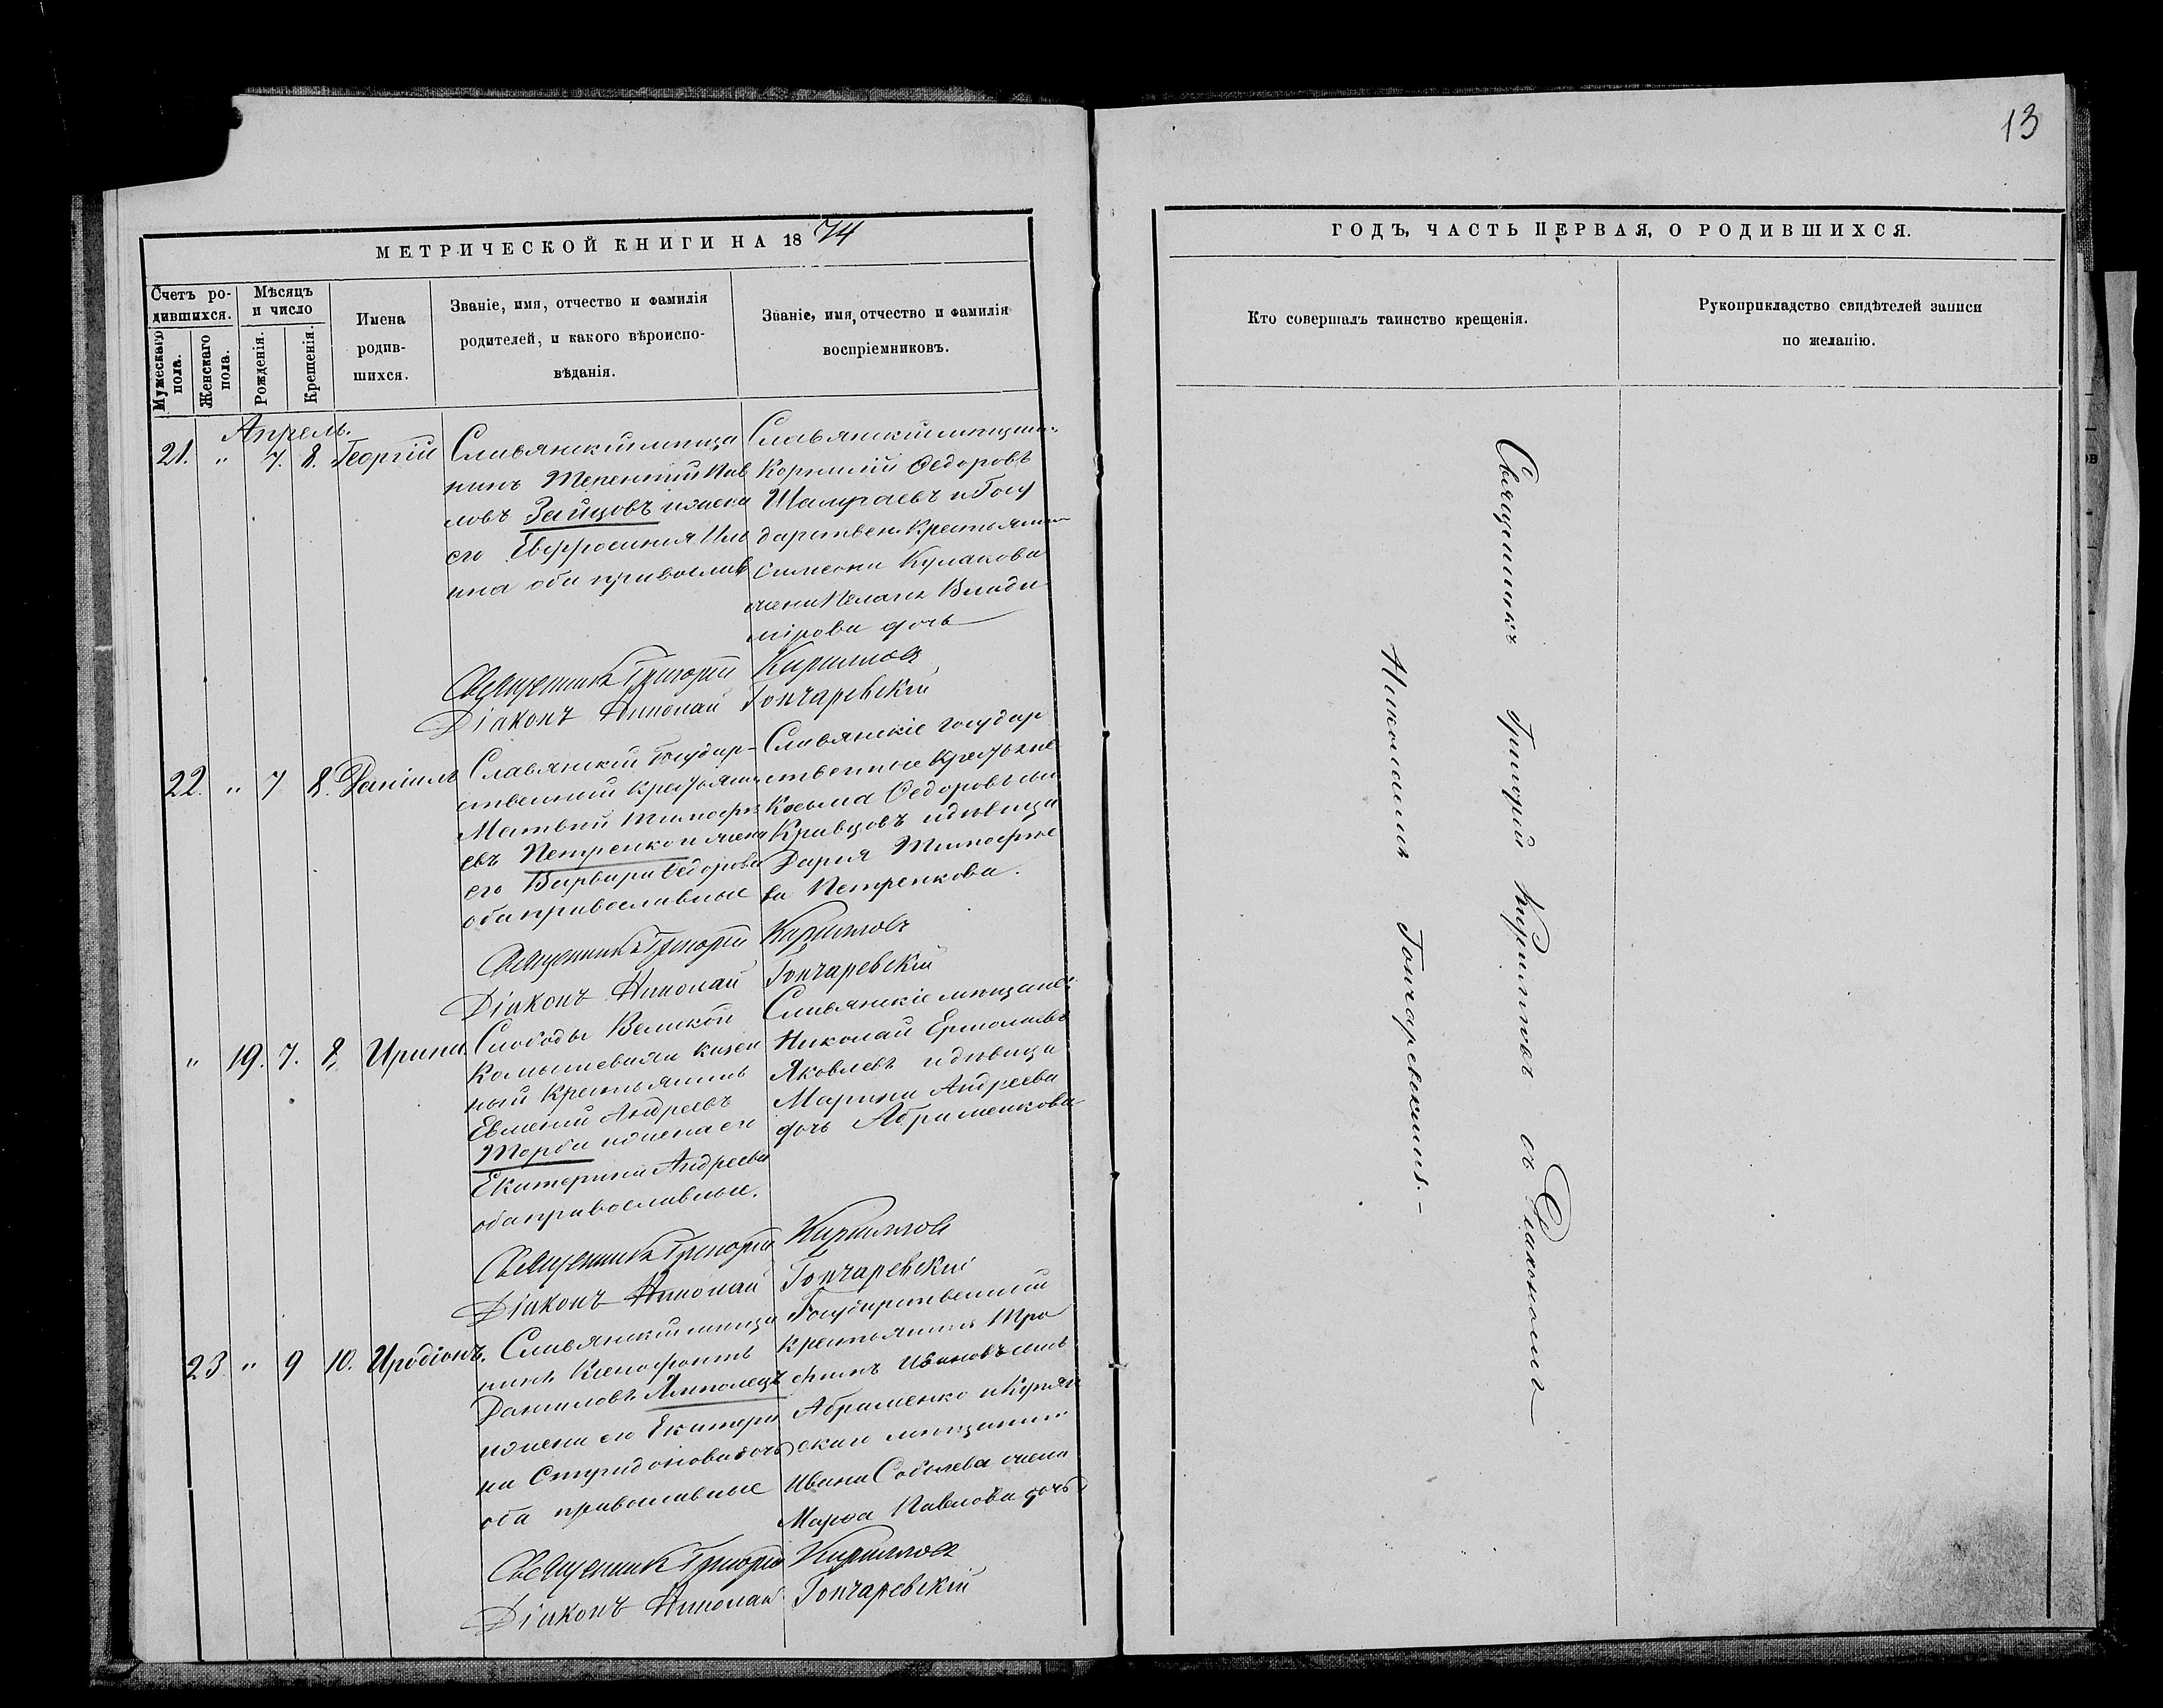 13
МЕТРИЧЕСКОЙ КНИГИ НА 1874
Счетъ ро-
дившихся.
Мужескаго
пола.
Женскаго
пола.
Мѣсяцъ
и число
Рожденія.
Крещенія.
Имена
родив-
шихся.
Званіе, имя, отчество и фамилія
родителей, и какого вѣроиспо-
вѣданія.
Званіе, имя, отчество и фамилія
воспріемниковъ.
Апрель.
21. " 7. 8. Георгій
Славянскій мѣща
нинъ Терентій Пав
ловъ Зайцовъ и жена
его Евфросинія Иль
ина оба православ
Славянскій мѣщан.
Корнилій Ѳедоровъ
Шамраевъ и Госу
дарствен. Крестьянин
Симеона Кулакова
жена Пелагія Влади
мірова дочь
Священникъ Григорій Кириллов
Діаконъ Николай Гончаревскій
22. " 7 8. Даніилъ
Славянскій Государ-
ственный Крестьянин
Матвѣй Тимофѣ
евъ Петренко и жена
его Варвара Ѳедорова
оба православные
Славянскіе государ
ственные Крестьяне
Косьма Ѳедоровъ сынъ
Кривцовъ и дѣвица
Дарія Тимофѣе
ва Петренкова.
Священникъ Григорій Кирилловъ
Діаконъ Николай Гончаревскій
" 19. 7. 8. Ирина.
Слободы Великой
Камышевахи казен
ный Крестьянинъ
Евменій Андреевъ
Торба и жена его
Екатерина Андреева
оба православные.
Славянскіе мѣщане:
Николай Ермолаевъ
Яковлевъ и дѣвица
Марина Андреева
дочь Абраменкова
Священникъ Григорій Кириллов
Діаконъ Николай Гончаревскій
23 " 9 10. Иродіонъ.
Славянскій мѣща
нинъ Ксенофонтъ
Даниловъ Ямполецъ
и жена его Екатери
на Спиридонова дочь
оба православные
Государственный
Крестьянинъ Тро
фимъ Ивановъ сынъ
Абраменко и Купян
скаго мѣщанин
Ивана Соболева жена
Марѳа Павлова дочь
Священникъ Григорій Кириллов
Діаконъ Николай Гончаревскій
ГОДЪ, ЧАСТЬ ПЕРВАЯ, О РОДИВШИХСЯ.
Кто совершалъ таинство крещенія.
Рукоприкладство свидѣтелей записи
по желанію.
Священникъ Григорій Кирилловъ съ Діакономъ
Николаемъ Гончаревскимъ.-